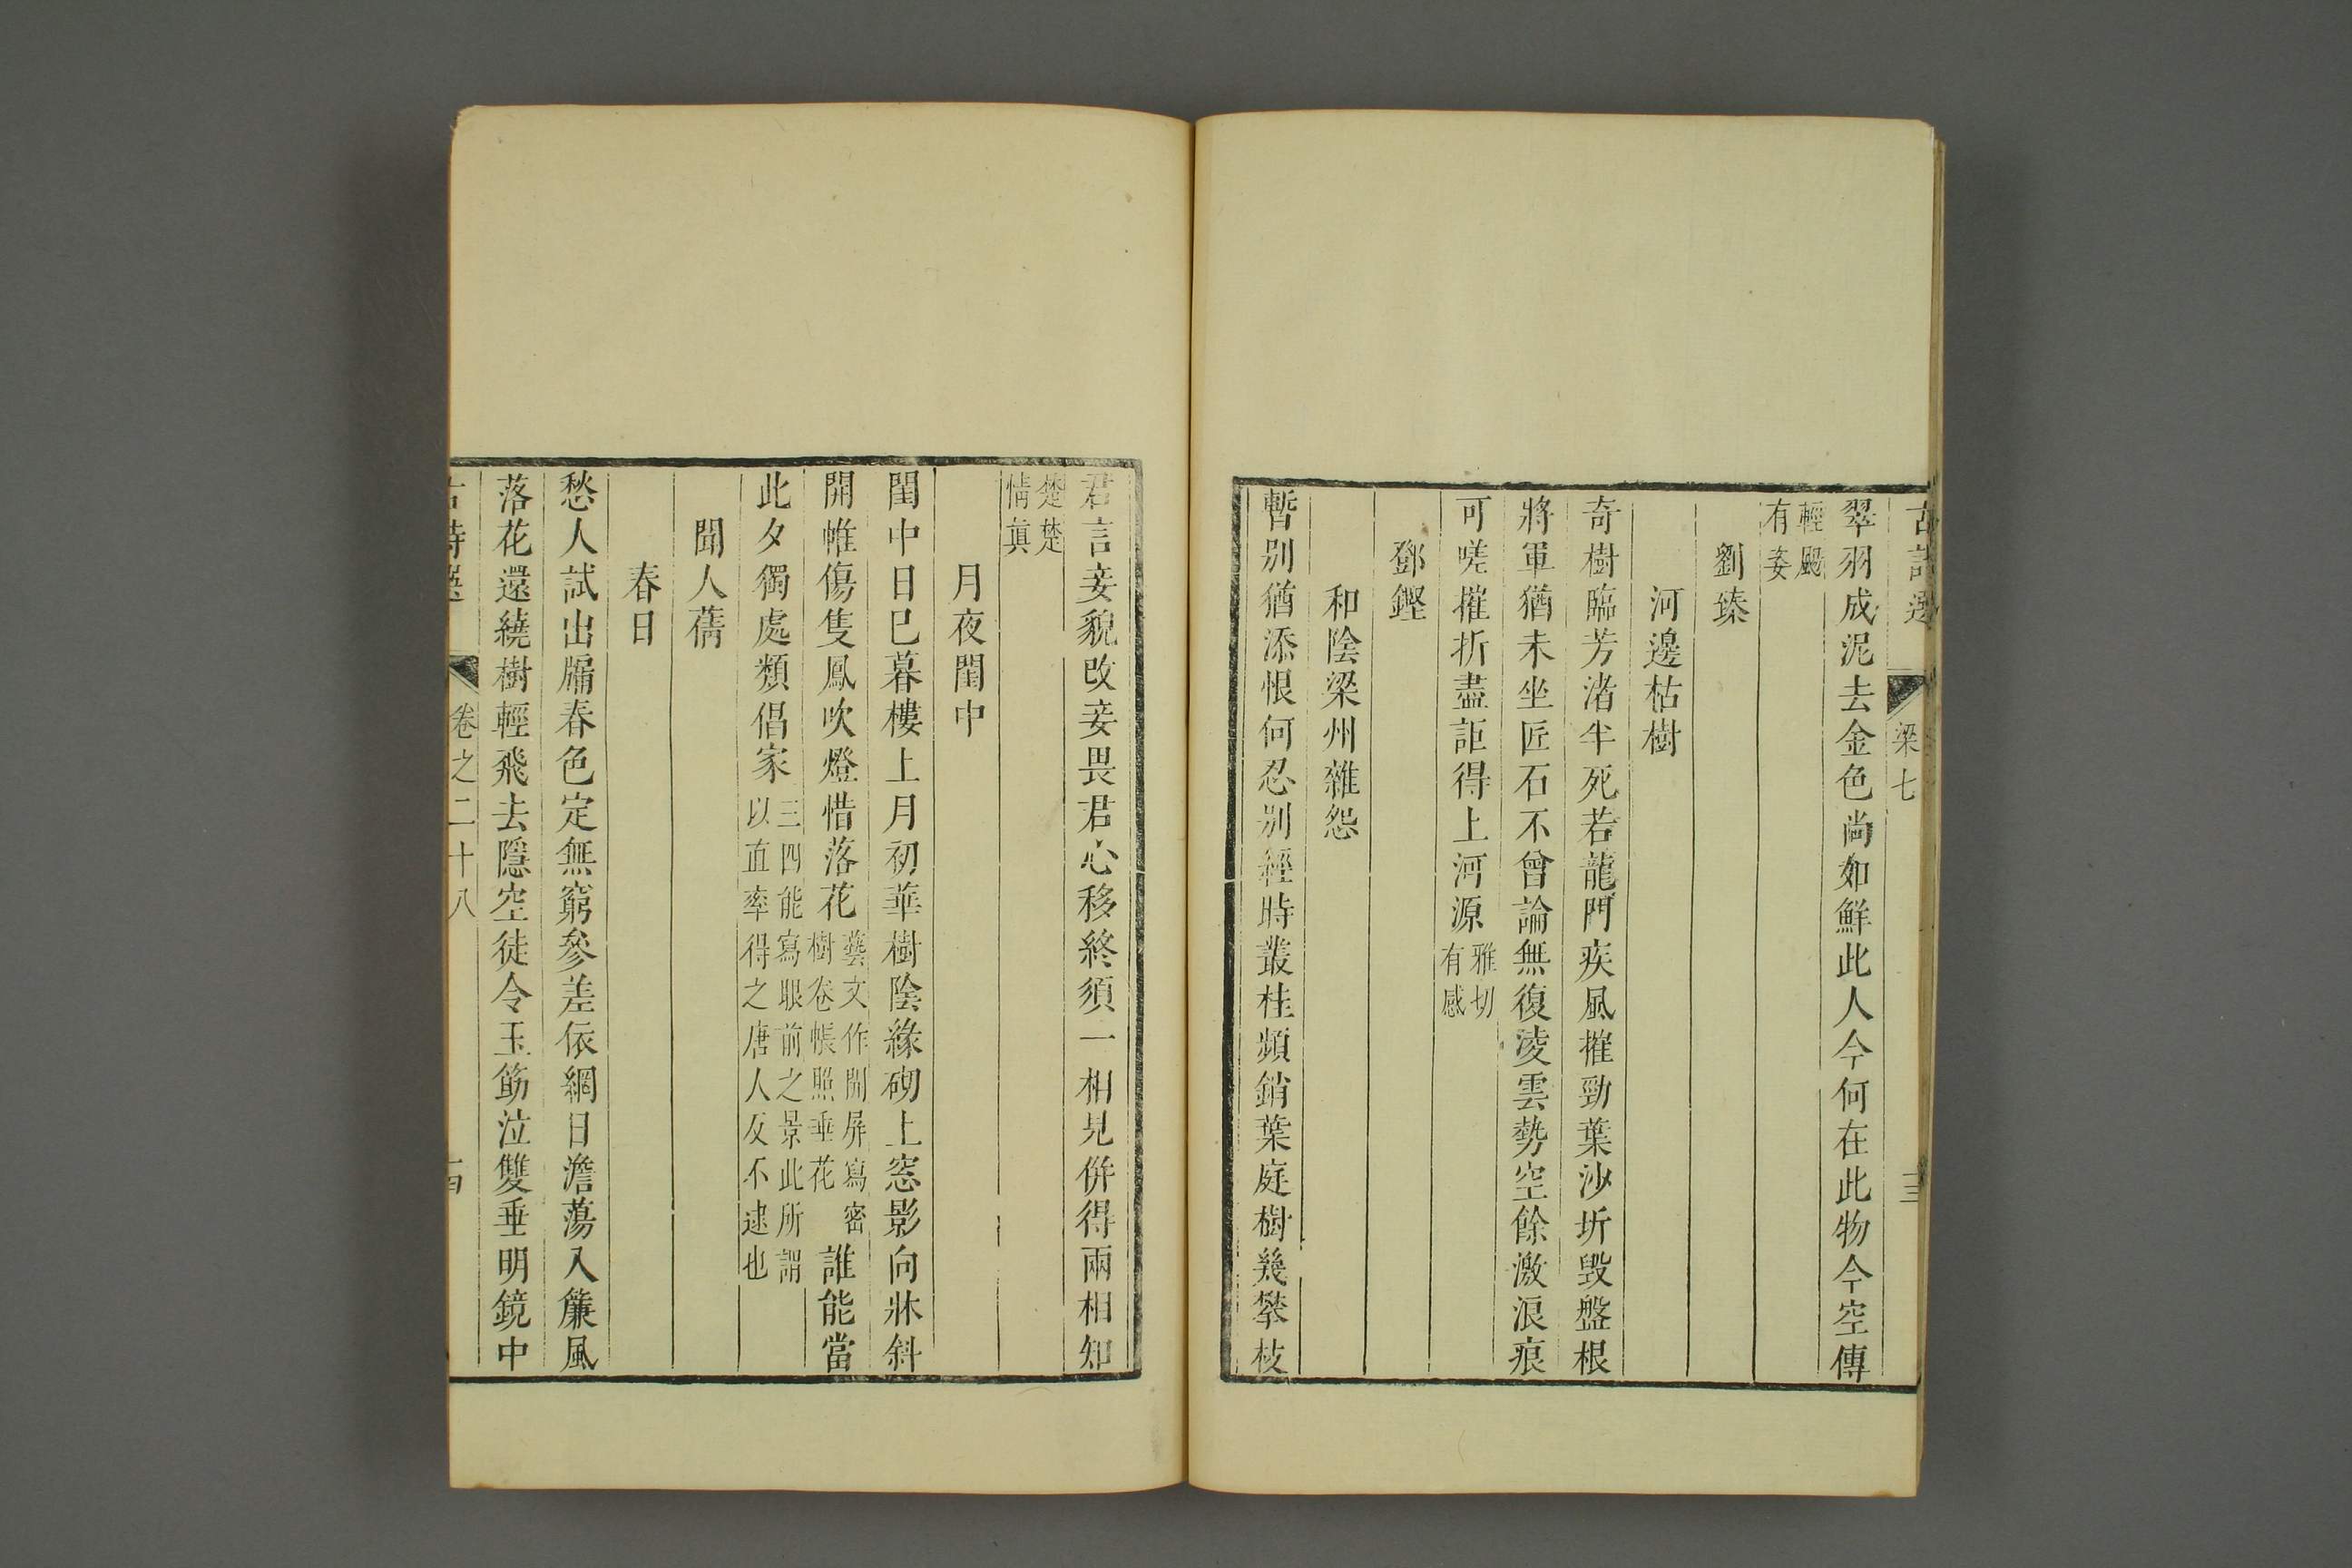 古詩選 梁七 三
翠羽成泥去金色尚如鮮此人今何在此物今空傳
輕颺
有姿
劉臻
河邊枯樹
奇樹臨芳渚半死若龍門疾風摧勁葉沙圻毀盤根
將軍猶未坐匠石不曾論無復淩雲勢空餘激浪痕
可嗟摧折盡詎得上河源
雅切
有感
鄧鏗
和陰梁州雜怨
暫別猶添恨何忍別經時叢桂頻銷葉庭樹幾攀枝
君言妾貌改妾畏君心移終須一相見併得兩相知
楚楚
情真
月夜閨中
閨中日已暮樓上月初華樹陰緣砌上窓影向牀斜
開帷傷隻鳳吹燈惜落花
藝文作開屏寫密
樹卷帳照垂花
誰能當
此夕獨處類倡家
三四能寫眼前之景此所謂
以直率得之唐人反不逮也
聞人蒨
春日
愁人試出牖春色定無窮參差依網日澹蕩入簾風
落花還繞樹輕飛去隱空徒令玉筯泣雙垂明鏡中
古詩選 卷之二十八